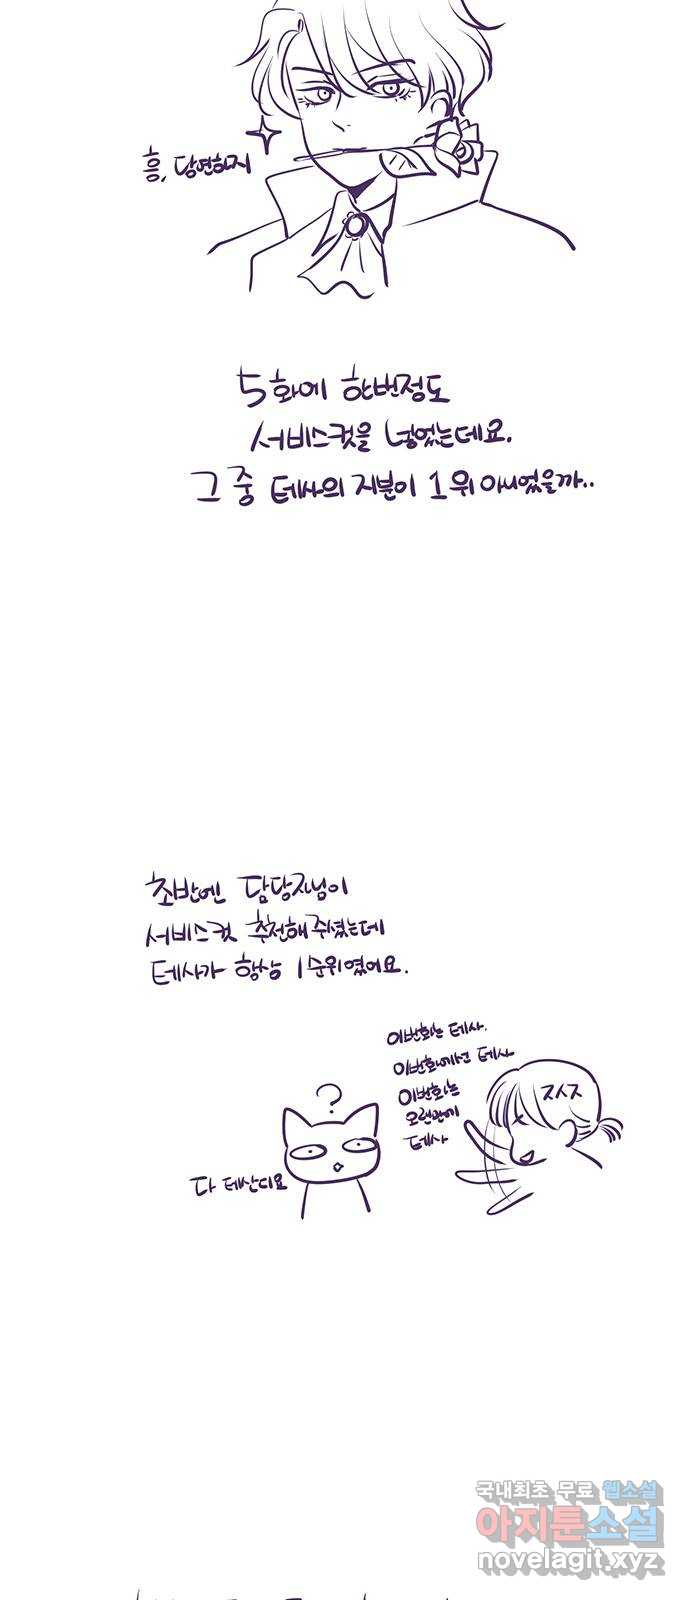 흥, 당연하지
5화에 한번정도
서비스컷을 넣었는데요.
그 중 테사의 지분이 1위 아니었을까..
초반엔 담당자님이
서비스컷 추천해주셨는데
테사가 항상 1순위였어요.
이번화는 테사.
이번화에서도 테사
이번화는
오랜만에
테사
ㅈㅅㅈ
?
다 테산디요
국내최초 무료 웹소설
아지툰소설
novelagit.xyz